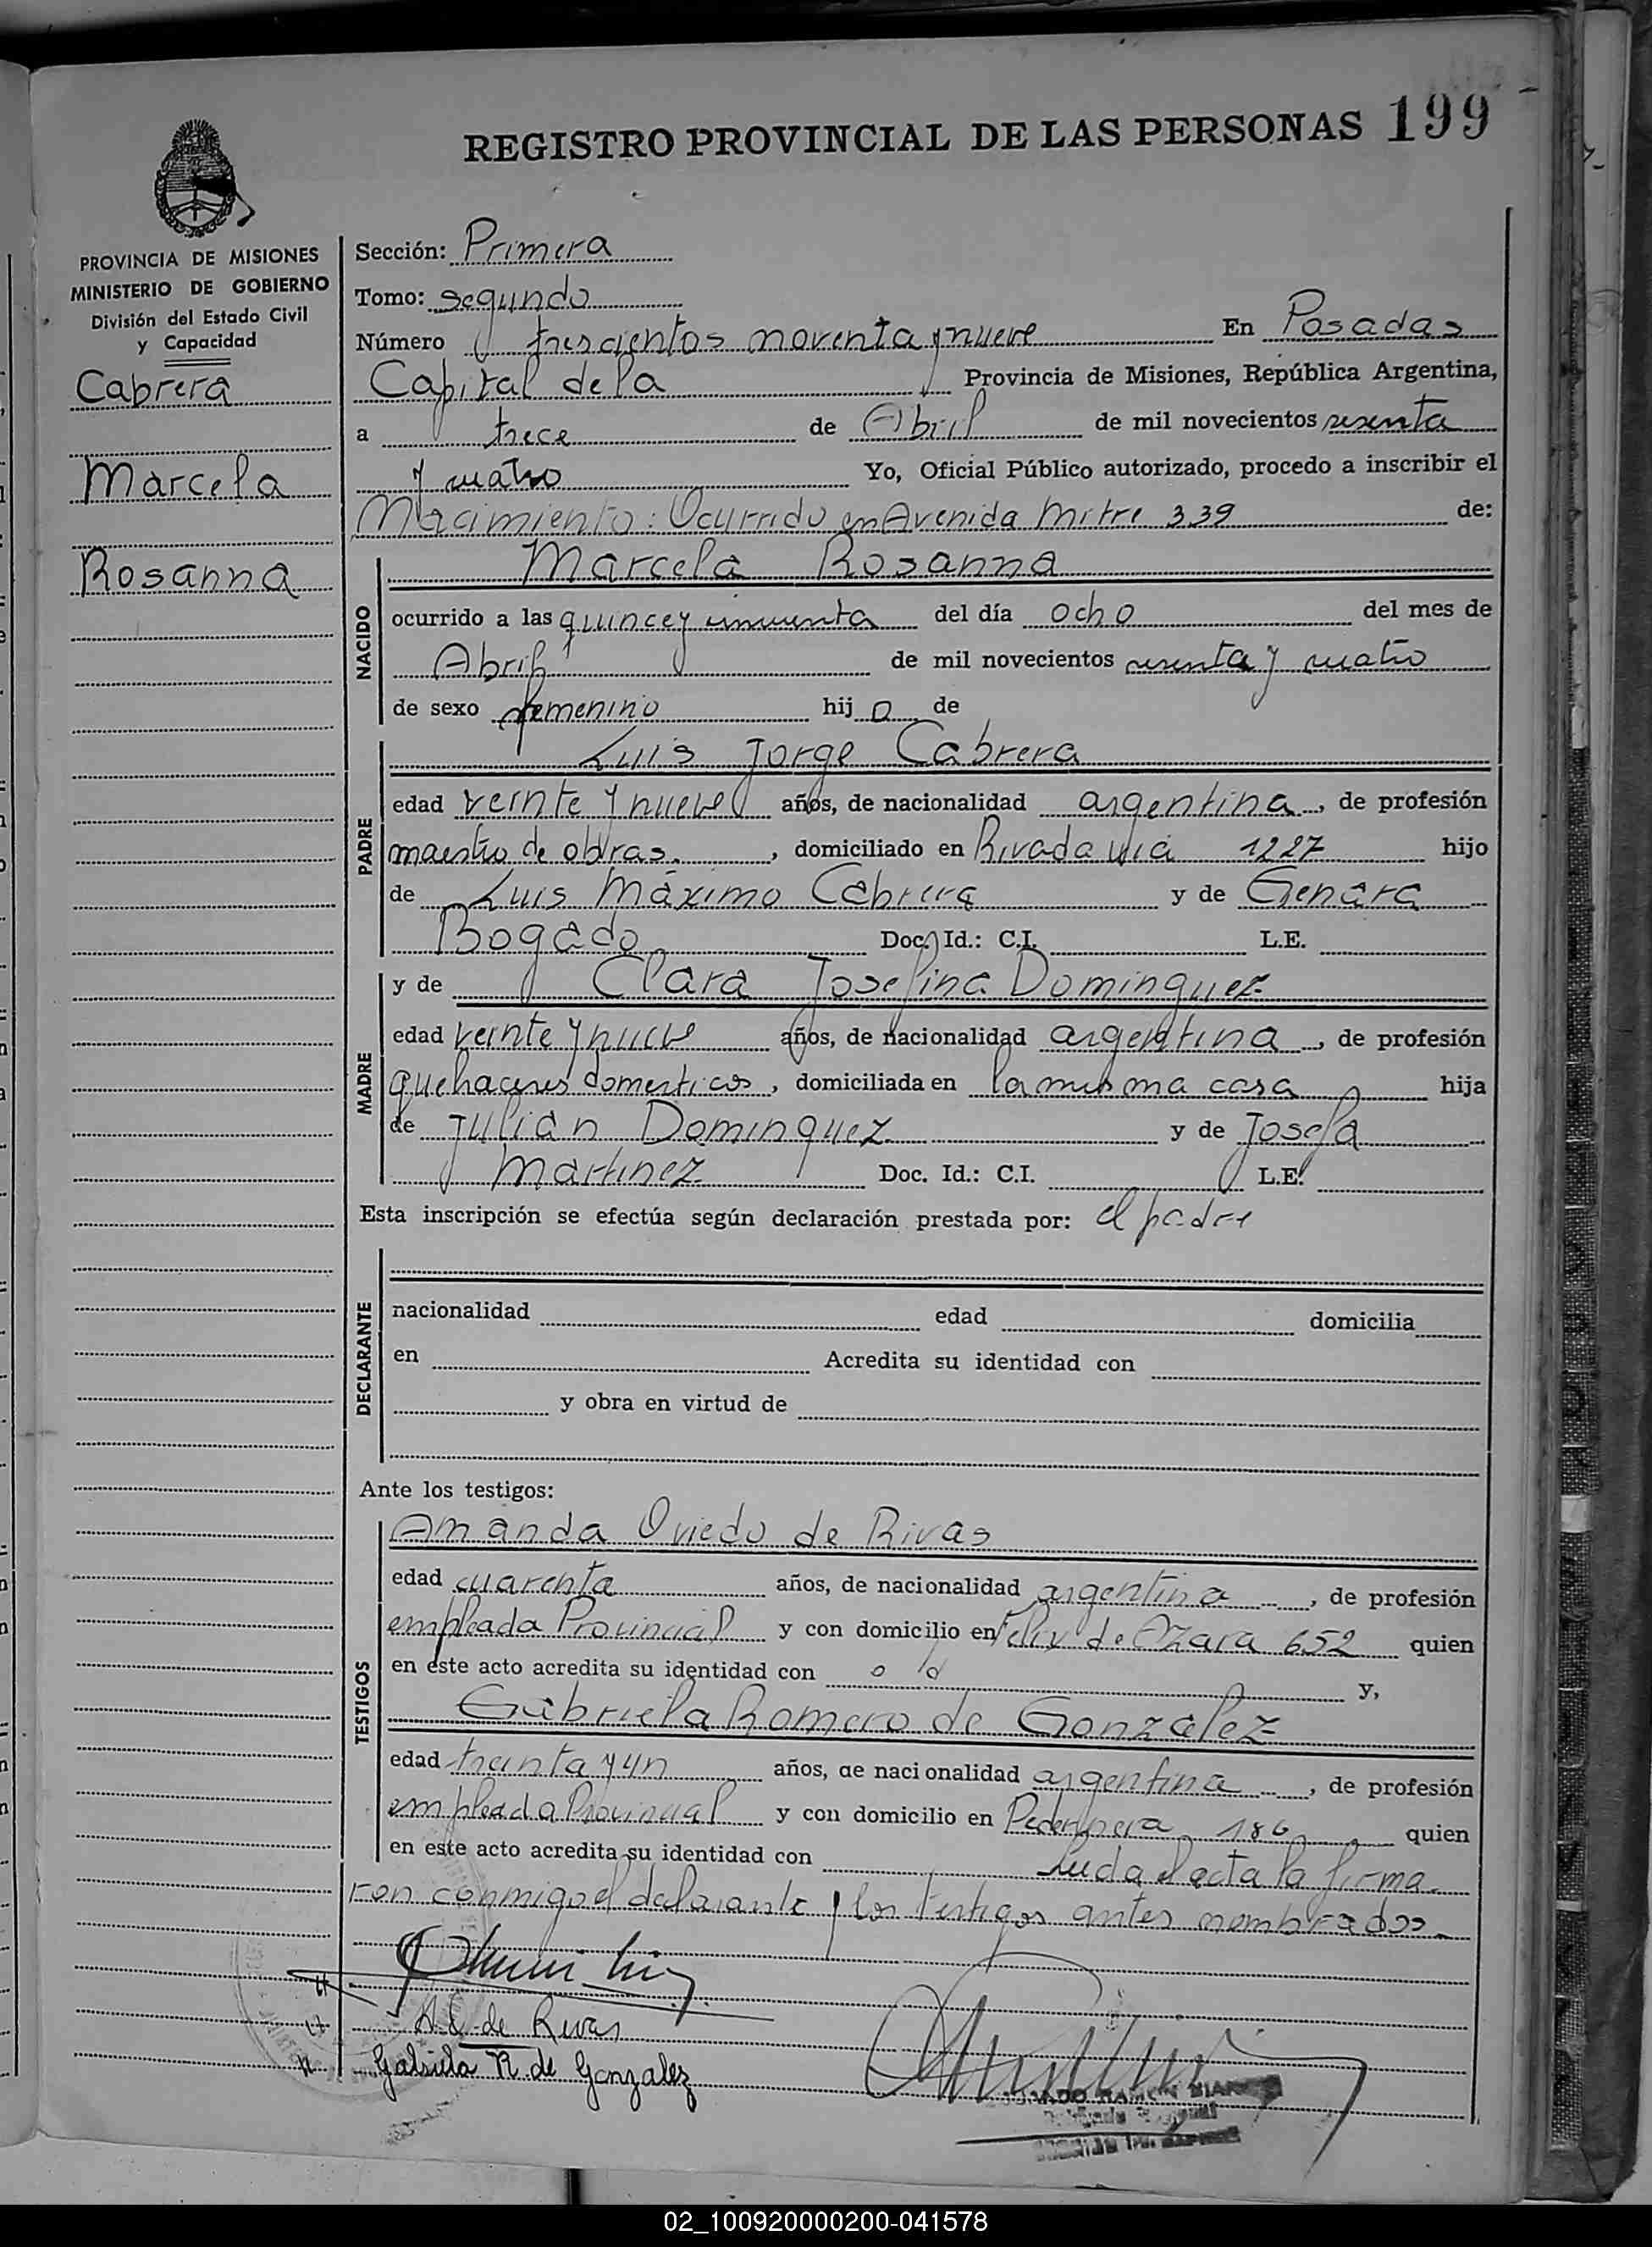 REGISTRO PROVINCIAL DE LAS PERSONAS 199
PROVINCIA DE MISIONES
MINISTERIO DE GOBIERNO
División del Estado Civil
y Capacidad
Cabrera
Marcela
Rosanna
Sección: Primera
Tomo: segundo
Número trescientos noventa y nueve En Posadas
Capital de la Provincia de Misiones, República Argentina,
a trece de Abril de mil novecientos sesenta
y cuatro Yo, Oficial Público autorizado, procedo a inscribir el
Nacimiento: Ocurrido en Avenida Mitre 339 de:
NACIDO
Marcela Rosanna
ocurrido a las quince y cincuenta del día ocho del mes de
Abril de mil novecientos sesenta y cuatro
de sexo femenino hij a de
PADRE
Luis Jorge Cabrera
edad veinte y nueve años, de nacionalidad argentina, de profesión
maestro de obras, domiciliado en Rivadavia 1227 hijo
de Luis Máximo Cabrera y de Genara
Bogado Doc. Id.: C.I. L.E.
MADRE
y de Clara Josefina Dominguez
edad veinte y nueve años, de nacionalidad argentina, de profesión
quehaceres domesticos, domiciliada en la misma casa hija
de Julián Dominguez y de Josefa
Martinez Doc. Id.: C.I. L.E.
Esta inscripción se efectúa según declaración prestada por: el padre
DECLARANTE
nacionalidad edad domicilia
en Acredita su identidad con
y obra en virtud de
Ante los testigos:
TESTIGOS
Amanda Oviedo de Rivas
edad cuarenta años, de nacionalidad argentina, de profesión
empleada Provincial y con domicilio en Felix de Azara 652 quien
en este acto acredita su identidad con y,
Gabriela Romero de Gonzalez
edad treinta y un años, de nacionalidad argentina, de profesión
empleada Provincial y con domicilio en Pedernera 186 quien
en este acto acredita su identidad con Leida el acta la firma
ron conmigo el declarante y los testigos antes nombrados.
A. O. de Rivas
Gabriela R. de Gonzalez
RAMON
02_100920000200-041578